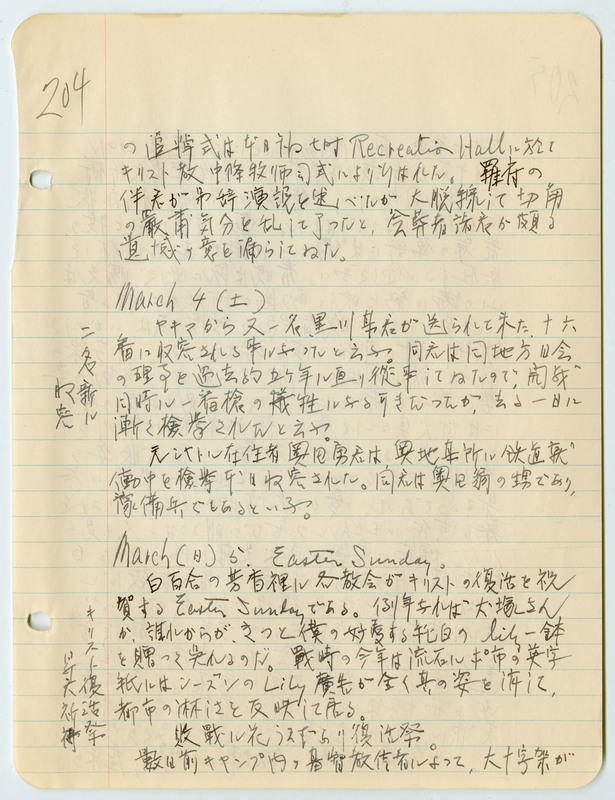 204
の追悼式は本日午后七時 Recreation Hall に於て
キリスト教 中降牧師司式により行はれた。 羅府の
伴君が弔辞演説を述べたが 大脱線して 切角
の厳粛気分を乱して了ったと、会葬者諸君が頗る
遺憾の意を漏らしてゐた。
March 4 (土)
ヤキマから又一名、黒川 君が送られて来た、十六
番に収容される事になったと云ふ。同君は同地方日会
の理事を過去約五ヶ年に亘り従事してゐたので、開戦
同時に一番槍の犠牲になる可きだったが、去る一日に
漸く検挙されたと云ふ。
元シヤトル在住者奥田勇君は奥地 所に鉄道就
働中を検挙 本日収容された。同君は奥田 の甥であり、
予備兵でもあるといふ。
二名新に
収容
March (日) 5. Easter Sunday.
白百合の芳香裡に各教会がキリストの復活を祝
賀する Easter Sunday である。例年なれば大塚さん
か、誰れからが、きっと僕の妙愛する純白の lily 一鉢
を贈って呉れるのだ。戦時の今年は流石にポ市の英字
紙にはシーズンの Lily 廣告が全く其の姿を消して、
都市の淋しさを反映して居る。
敗戦に花うえたり復活祭。
数日前キャンプ内の基督教信者によって、大十字架が
キリスト復活祭
昇天祈祷